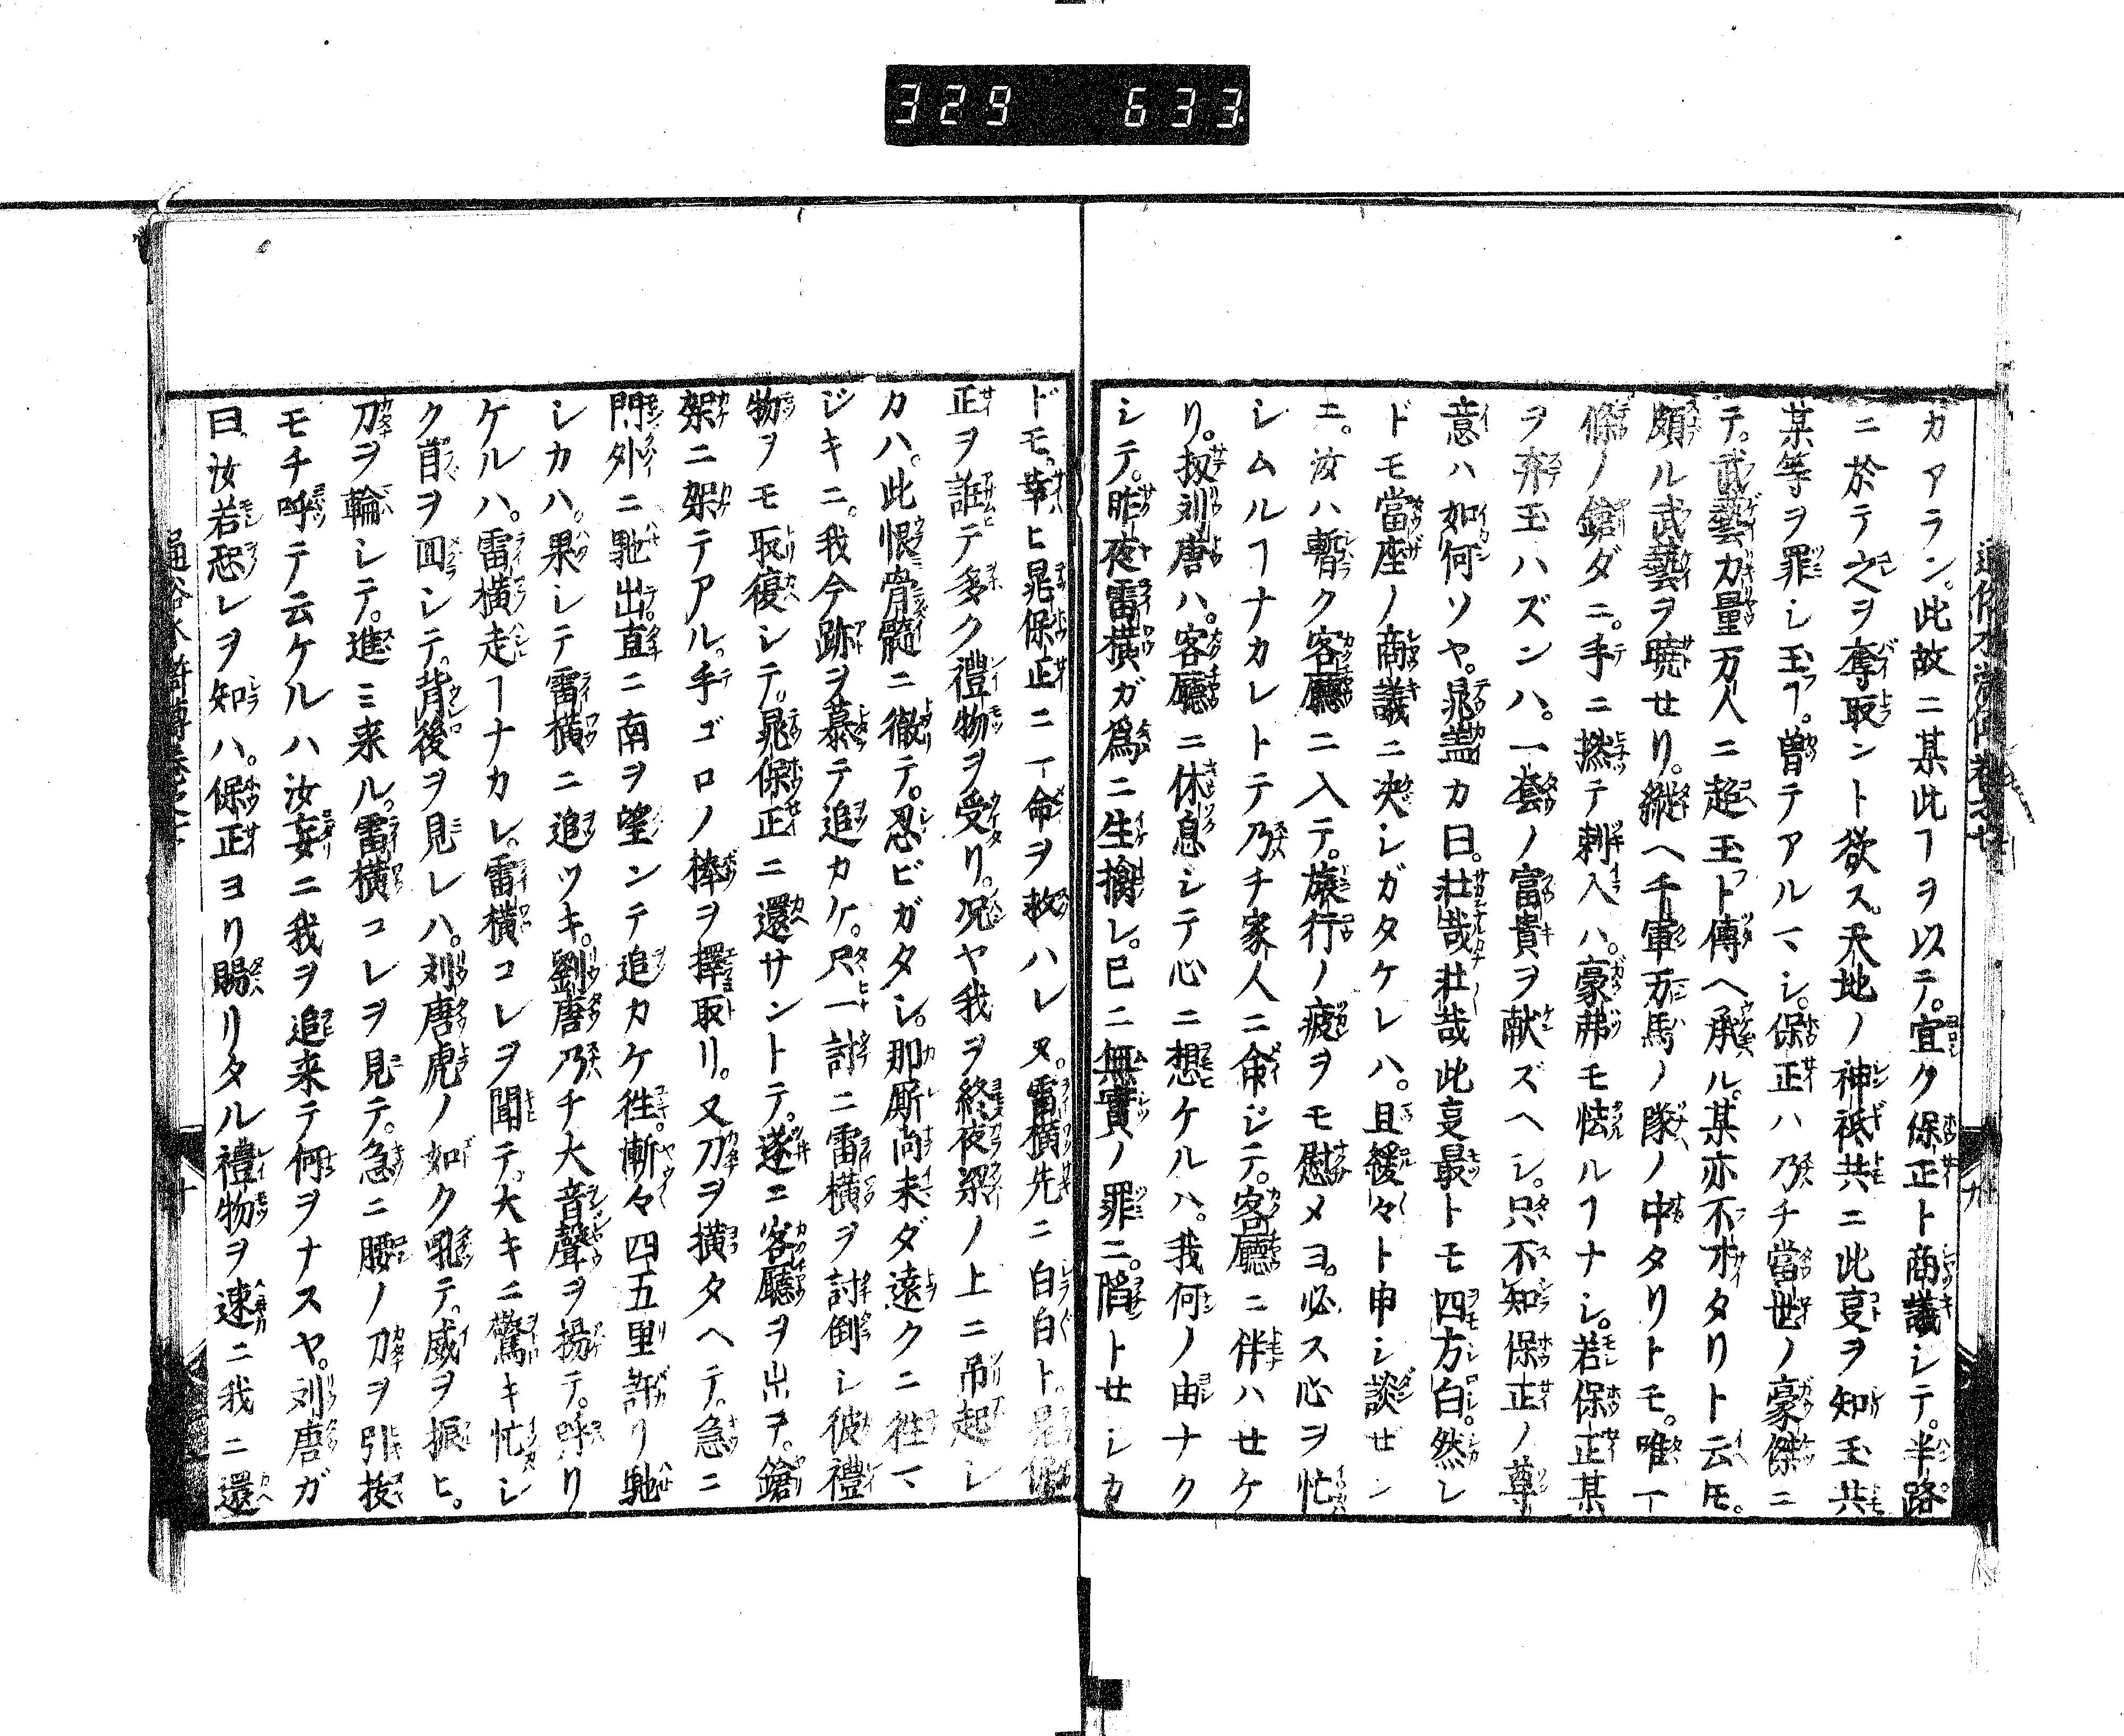 329 633
カアラン。此故ニ某此ヿヲ以テ。宜ク保正ト商議シテ。半路
ニ於テ之ヲ奪取ント欲ス。天地ノ神祇共ニ此叓ヲ知玉共
某等ヲ罪シ玉ヿ。曽テアルマシ。保正ハ乃チ當世ノ豪傑ニ
テ。武藝力量万人ニ超玉ト傳ヘ承ル。某亦不才タリト云𪜈。
頗ル武藝ヲ曉セリ。縦ヘ千軍万馬ノ隊ノ中タリトモ。唯一
條ノ鎗ダニ。手ニ撚テ剌入ハ。豪弗モ怯ルヿナシ。若保正某
ヲ弃玉ハズンハ。一套ノ富貴ヲ献ズヘシ。只不知保正ノ尊
意ハ如何ソヤ。晁盖カ曰。壮哉壮哉此叓最トモ四方白。然レ
ドモ當座ノ商議ニ决シガタケレハ。且緩々ト申シ談ゼン
ニ。汝ハ暫ク客廳ニ入テ。旅行ノ疲ヲモ慰メヨ。必ス心ヲ忙
シムルヿナカレトテ乃チ家人ニ命ジテ。客廳ニ伴ハセケ
リ。扨刘唐ハ。客廳ニ休息シテ心ニ想ケルハ。我何ノ由ナク
シテ。昨夜雷横ガ爲ニ生擒レ。已ニ無實ノ罪ニ。陷トセシカ
ドモ。幸ヒ晁保正ニ一命ヲ救ハレヌ。雷横先ニ白白ト。晁保
正ヲ誰テ多ク禮物ヲ受リ。况ヤ我ヲ終夜梁ノ上ニ吊起シ
カハ。此恨骨髓ニ徹テ。忍ビガタシ。那厮尚未ダ遠クニ徃マ
ジキニ。我今跡ヲ慕テ追カケ。只一討ニ雷横ヲ討倒シ彼禮
物ヲモ取復シテ。晁保正ニ還サントテ。遂ニ客廳ヲ出テ。鎗
架ニ架テアル。手ゴロノ棒ヲ擇取リ。又刀ヲ横タヘテ。急ニ
門外ニ馳出直ニ南ヲ望ンテ追カケ徃。漸々四五里許リ馳
シカハ。果シテ雷横ニ追ツキ。劉唐乃チ大音聲ヲ揚テ。呼リ
ケルハ。雷横走ヿナカレ。雷横コレヲ聞テ。大キニ驚キ忙シ
ク首ヲ回シテ。背後ヲ見レハ。刘唐虎ノ如ク吼テ。威ヲ振ヒ。
刀ヲ輪シテ。進ミ来ル。雷横コレヲ見テ。急ニ腰ノ刀ヲ引拔
モチ呼テ云ケルハ汝妄ニ我ヲ追来テ何ヲナスヤ。刘唐ガ
曰。汝若恐レヲ知ハ。保正ヨリ賜リタル禮物ヲ速ニ我ニ還